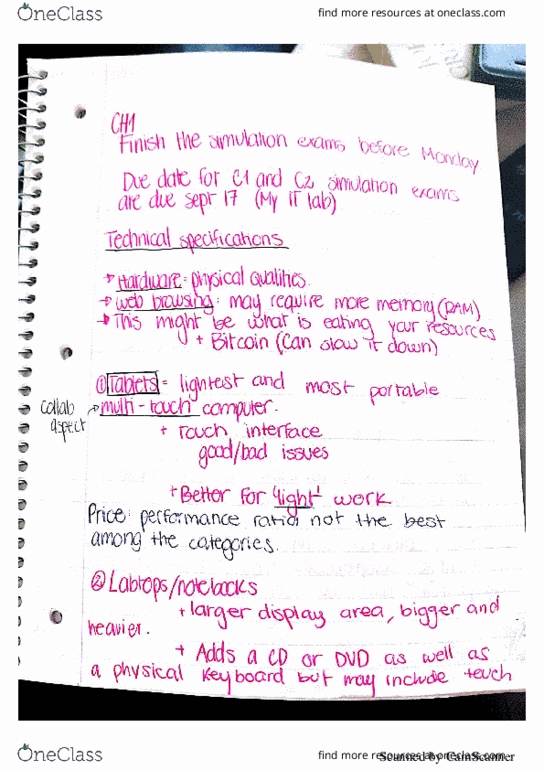 OneClass
find more resources at oneclass.com
CH1
Finish the simulation exams before Monday
Due date for C1 and C2 simulation exams
are due sept 17 (My IT lab)
Technical specifications
→ Hardware: physical qualities.
→ web browsing: may require more memory (RAM)
→ This might be what is eating your resources
+ Bitcoin (can slow it down)
① Tablets = lightest and most portable
collab aspect
→ multi-touch computer.
+ Touch interface
good/bad issues
+ Better for "light" work
Price: performance ratio not the best
among the categories.
② Labtops/notebooks
+ larger display area, bigger and
heavier.
+ Adds a CD or DVD as well as
a physical keyboard but may include touch
OneClass
find more resources at oneclass.com
Scanned by CamScanner